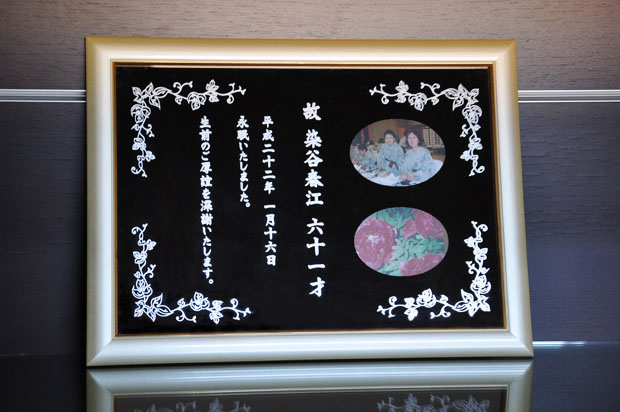 故 染谷春江 六十一才
平成二十二年 一月十六日
永眠いたしました。
生前のご厚誼を深謝いたします。